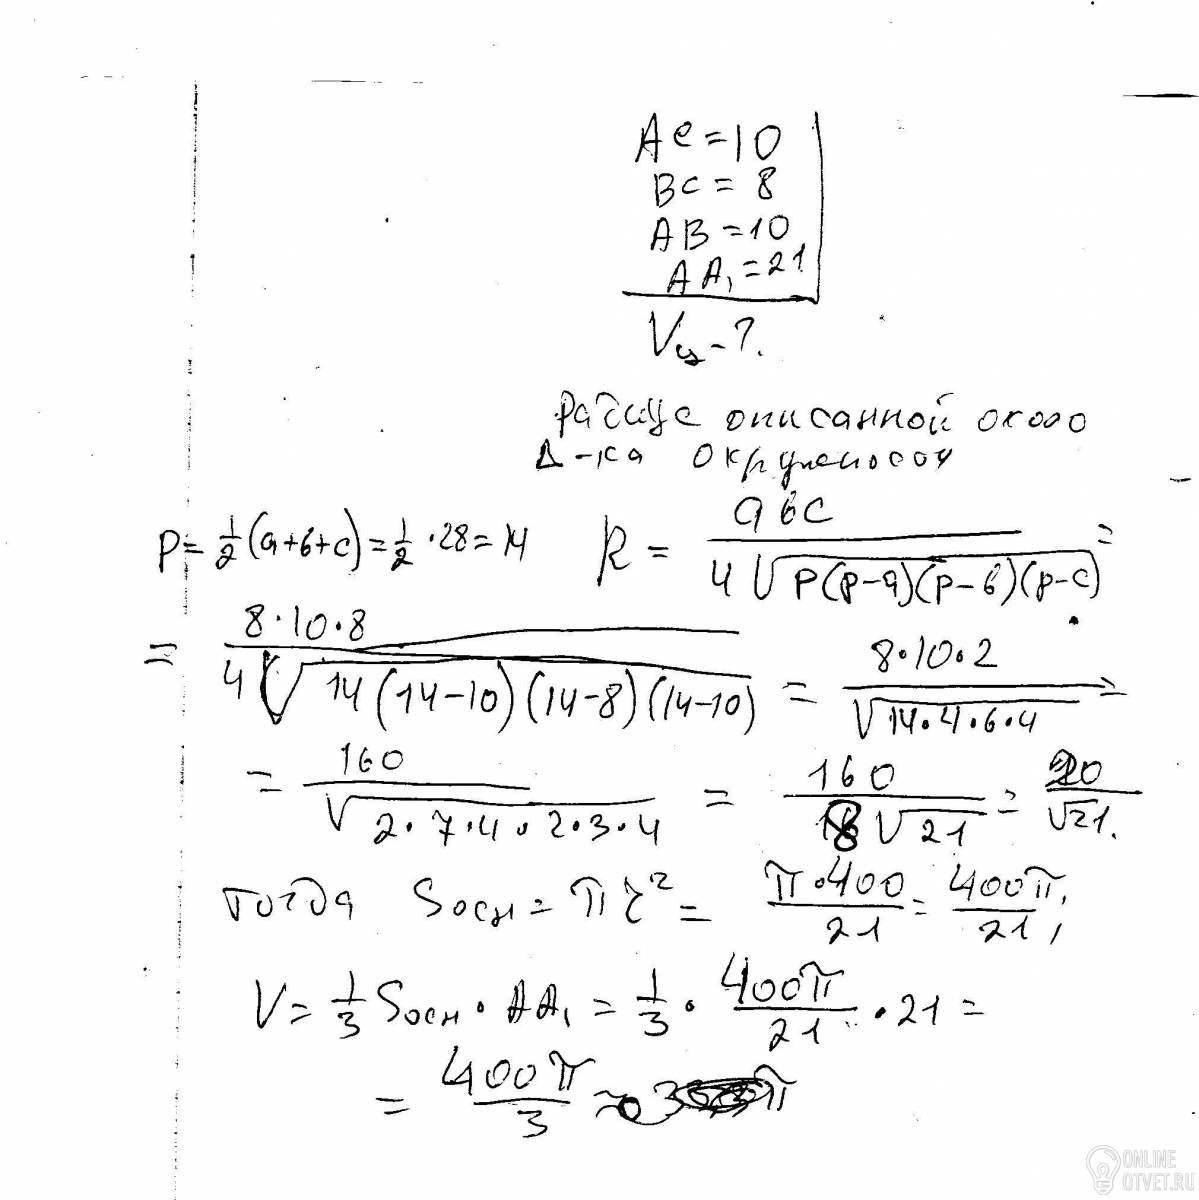 AC=10
BC=8
AB=10
AA₁=21
Vц-?.
Радиус описанной около
Δ-ка окружности
P=½(a+b+c)=½·28=14 R = abc / 4√P(P-a)(P-b)(P-c) =
= 8·10·8 / 4√14(14-10)(14-8)(14-10) = 8·10·2 / √14·4·6·4 =
= 160 / √2·7·4·2·3·4 = 160 / 8√21 = 20 / √21.
тогда Sосн = πr² = π·400 / 21 = 400π / 21;
V = ⅓ Sосн · AA₁ = ⅓ · 400π / 21 · 21 =
= 400π / 3 ≈ π
ONLINE
OTVET.RU